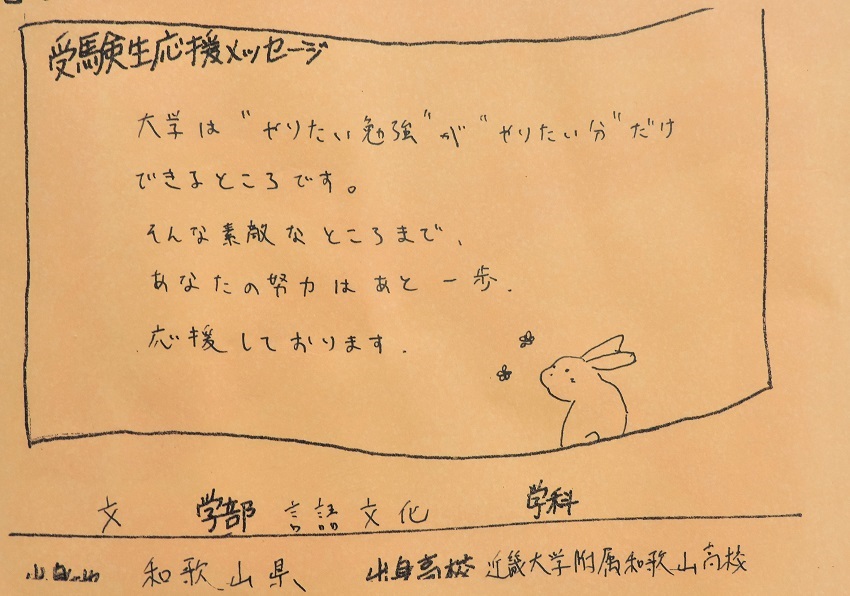 受験生応援メッセージ
大学は"やりたい勉強"が"やりたい分"だけ
できるところです。
そんな素敵なところまで、
あなたの努力はあと一歩.
応援しております.
文 学部 言語文化 学科
和歌山県 出身高校 近畿大学附属和歌山高校